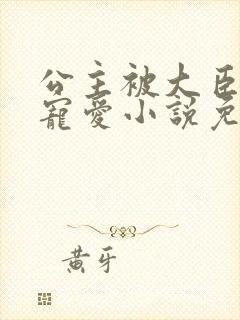 公主被大臣
寵愛小說免
黄牙